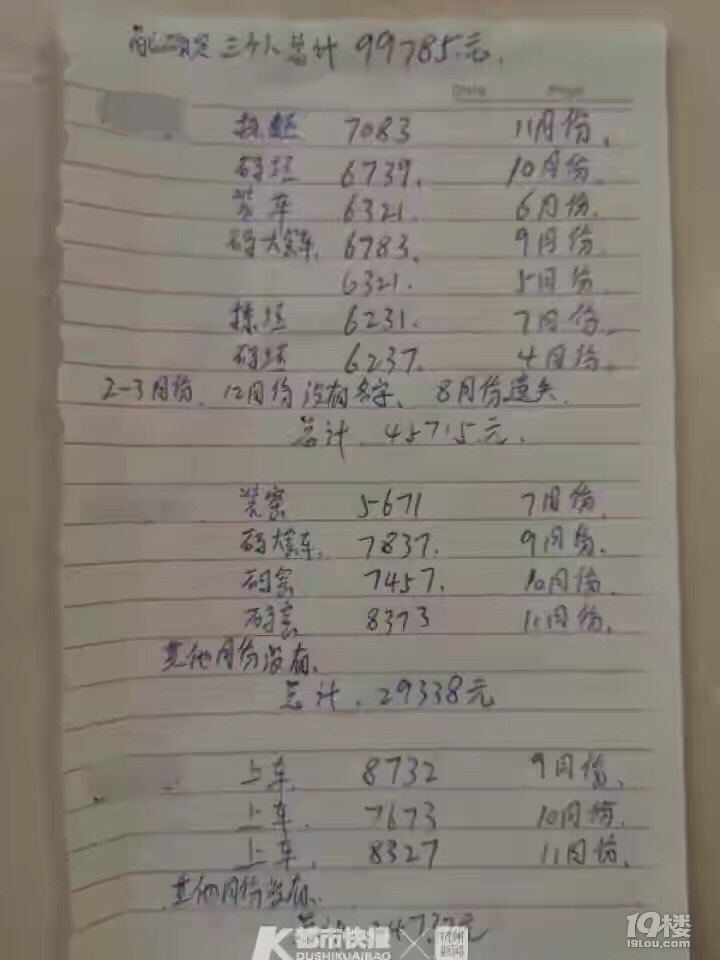 三个人总计 99785元.
Date Page
7083 11月份.
码坯 6739. 10月份.
装车 6321. 6月份.
码大窑车. 6783. 9月份.
6321. 5月份.
拣坯 6231. 7月份.
码坯 6237. 4月份.
2-3月份、12月份没有名字、8月份遗失.
总计.45715元.
装窑 5671 7月份.
码大窑车. 7837. 9月份.
码窑 7457. 10月份.
码窑 8373 11月份.
其他月份没有.
总计.29338元
上车. 8732 9月份.
上车. 7673 10月份.
上车. 8327 11月份.
其他月份没有.
24732元
都市快报
DUSHIKUAIBAO
杭州新闻
19楼
19lou.com